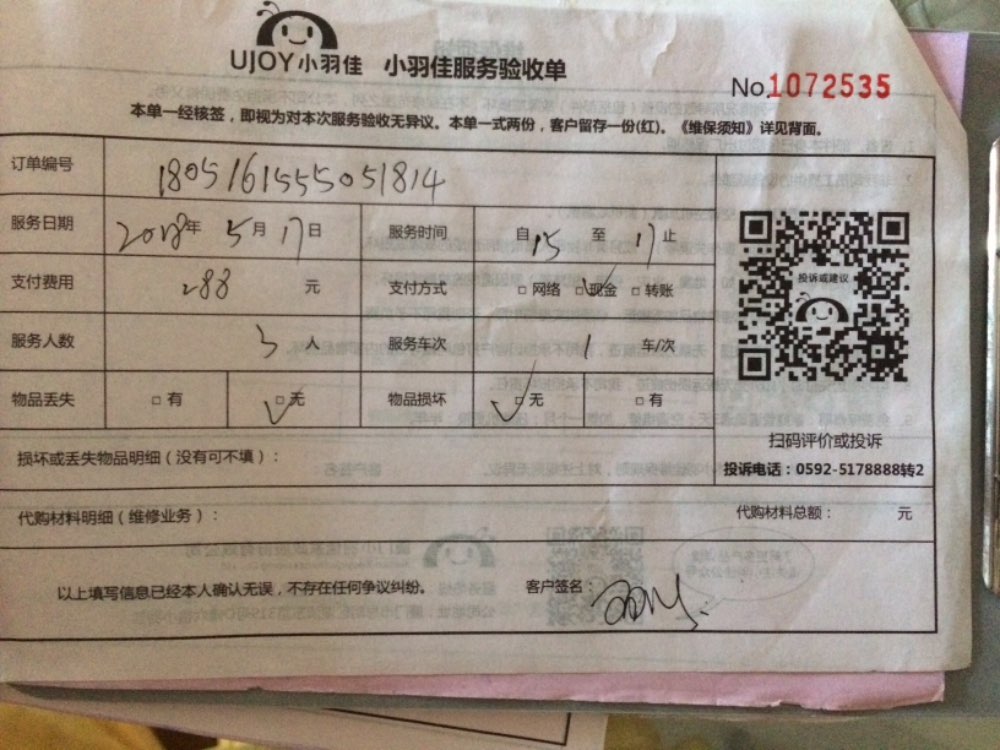 UJOY小羽佳 小羽佳服务验收单
No.1072535
本单一经核签，即视为对本次服务验收无异议。本单一式两份，客户留存一份(红)。《维保须知》详见背面。
订单编号 1805161555051814
服务日期 2018年5月17日 服务时间 自15至17止
支付费用 288元 支付方式 □网络 □现金 □转账
投诉或建议
服务人数 3人 服务车次 1车/次
物品丢失 □有 □无 物品损坏 □无 □有
扫码评价或投诉
投诉电话：0592-5178888转2
损坏或丢失物品明细（没有可不填）：
代购材料明细（维修业务）： 代购材料总额： 元
以上填写信息已经本人确认无误，不存在任何争议纠纷。 客户签名：